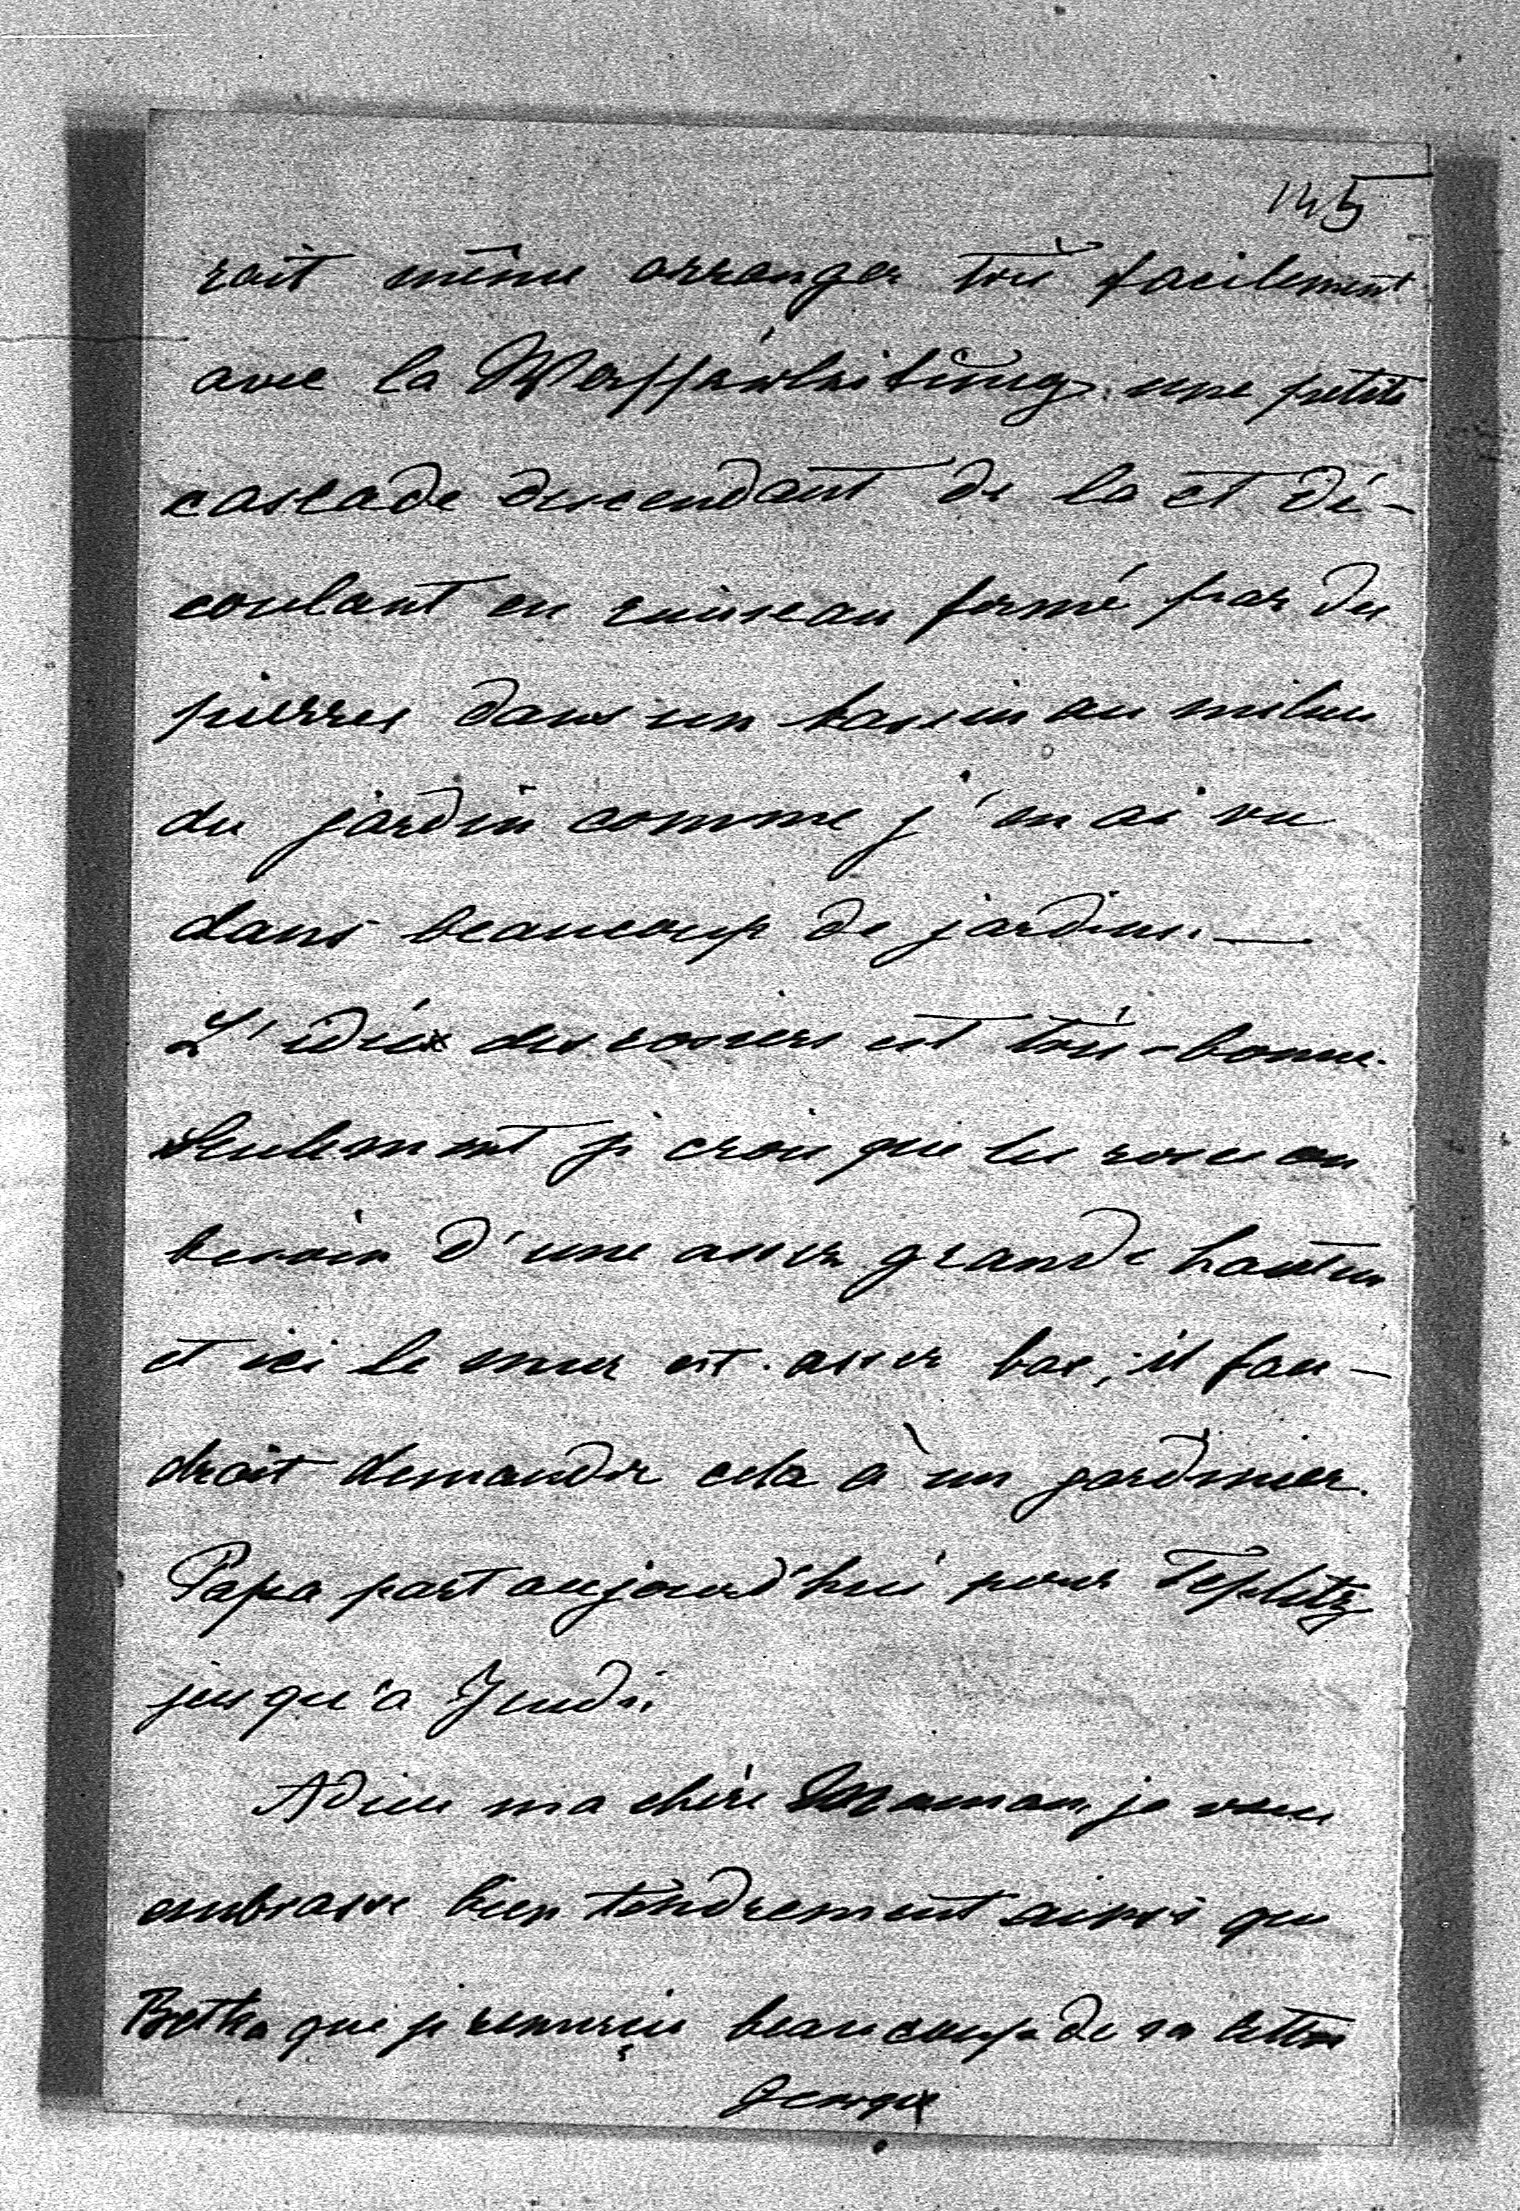 145
rait même arranger très facilement
avec la Wasserleitung une petite
cascade descendant de la et dé-
coulant en ruisseau formé par des
pierres dans un bassin au milieu
du jardin comme j'en ai vu
dans beaucoup de jardins. —
L'idée des rosiers est très-bonne.
Seulement je crois que les roses on
besoin d'une assez grande hauteur
et ici le mur est assez bas, il fau-
drait demander cela à un jardinier.
Papa part aujourd'hui pour Teplitz
jusqu'a Jeudi
Adieu ma chère Maman, je vous
embrasse bien tendrement ainsi que
Betka que je remercie beaucoup de sa lettre
Georges